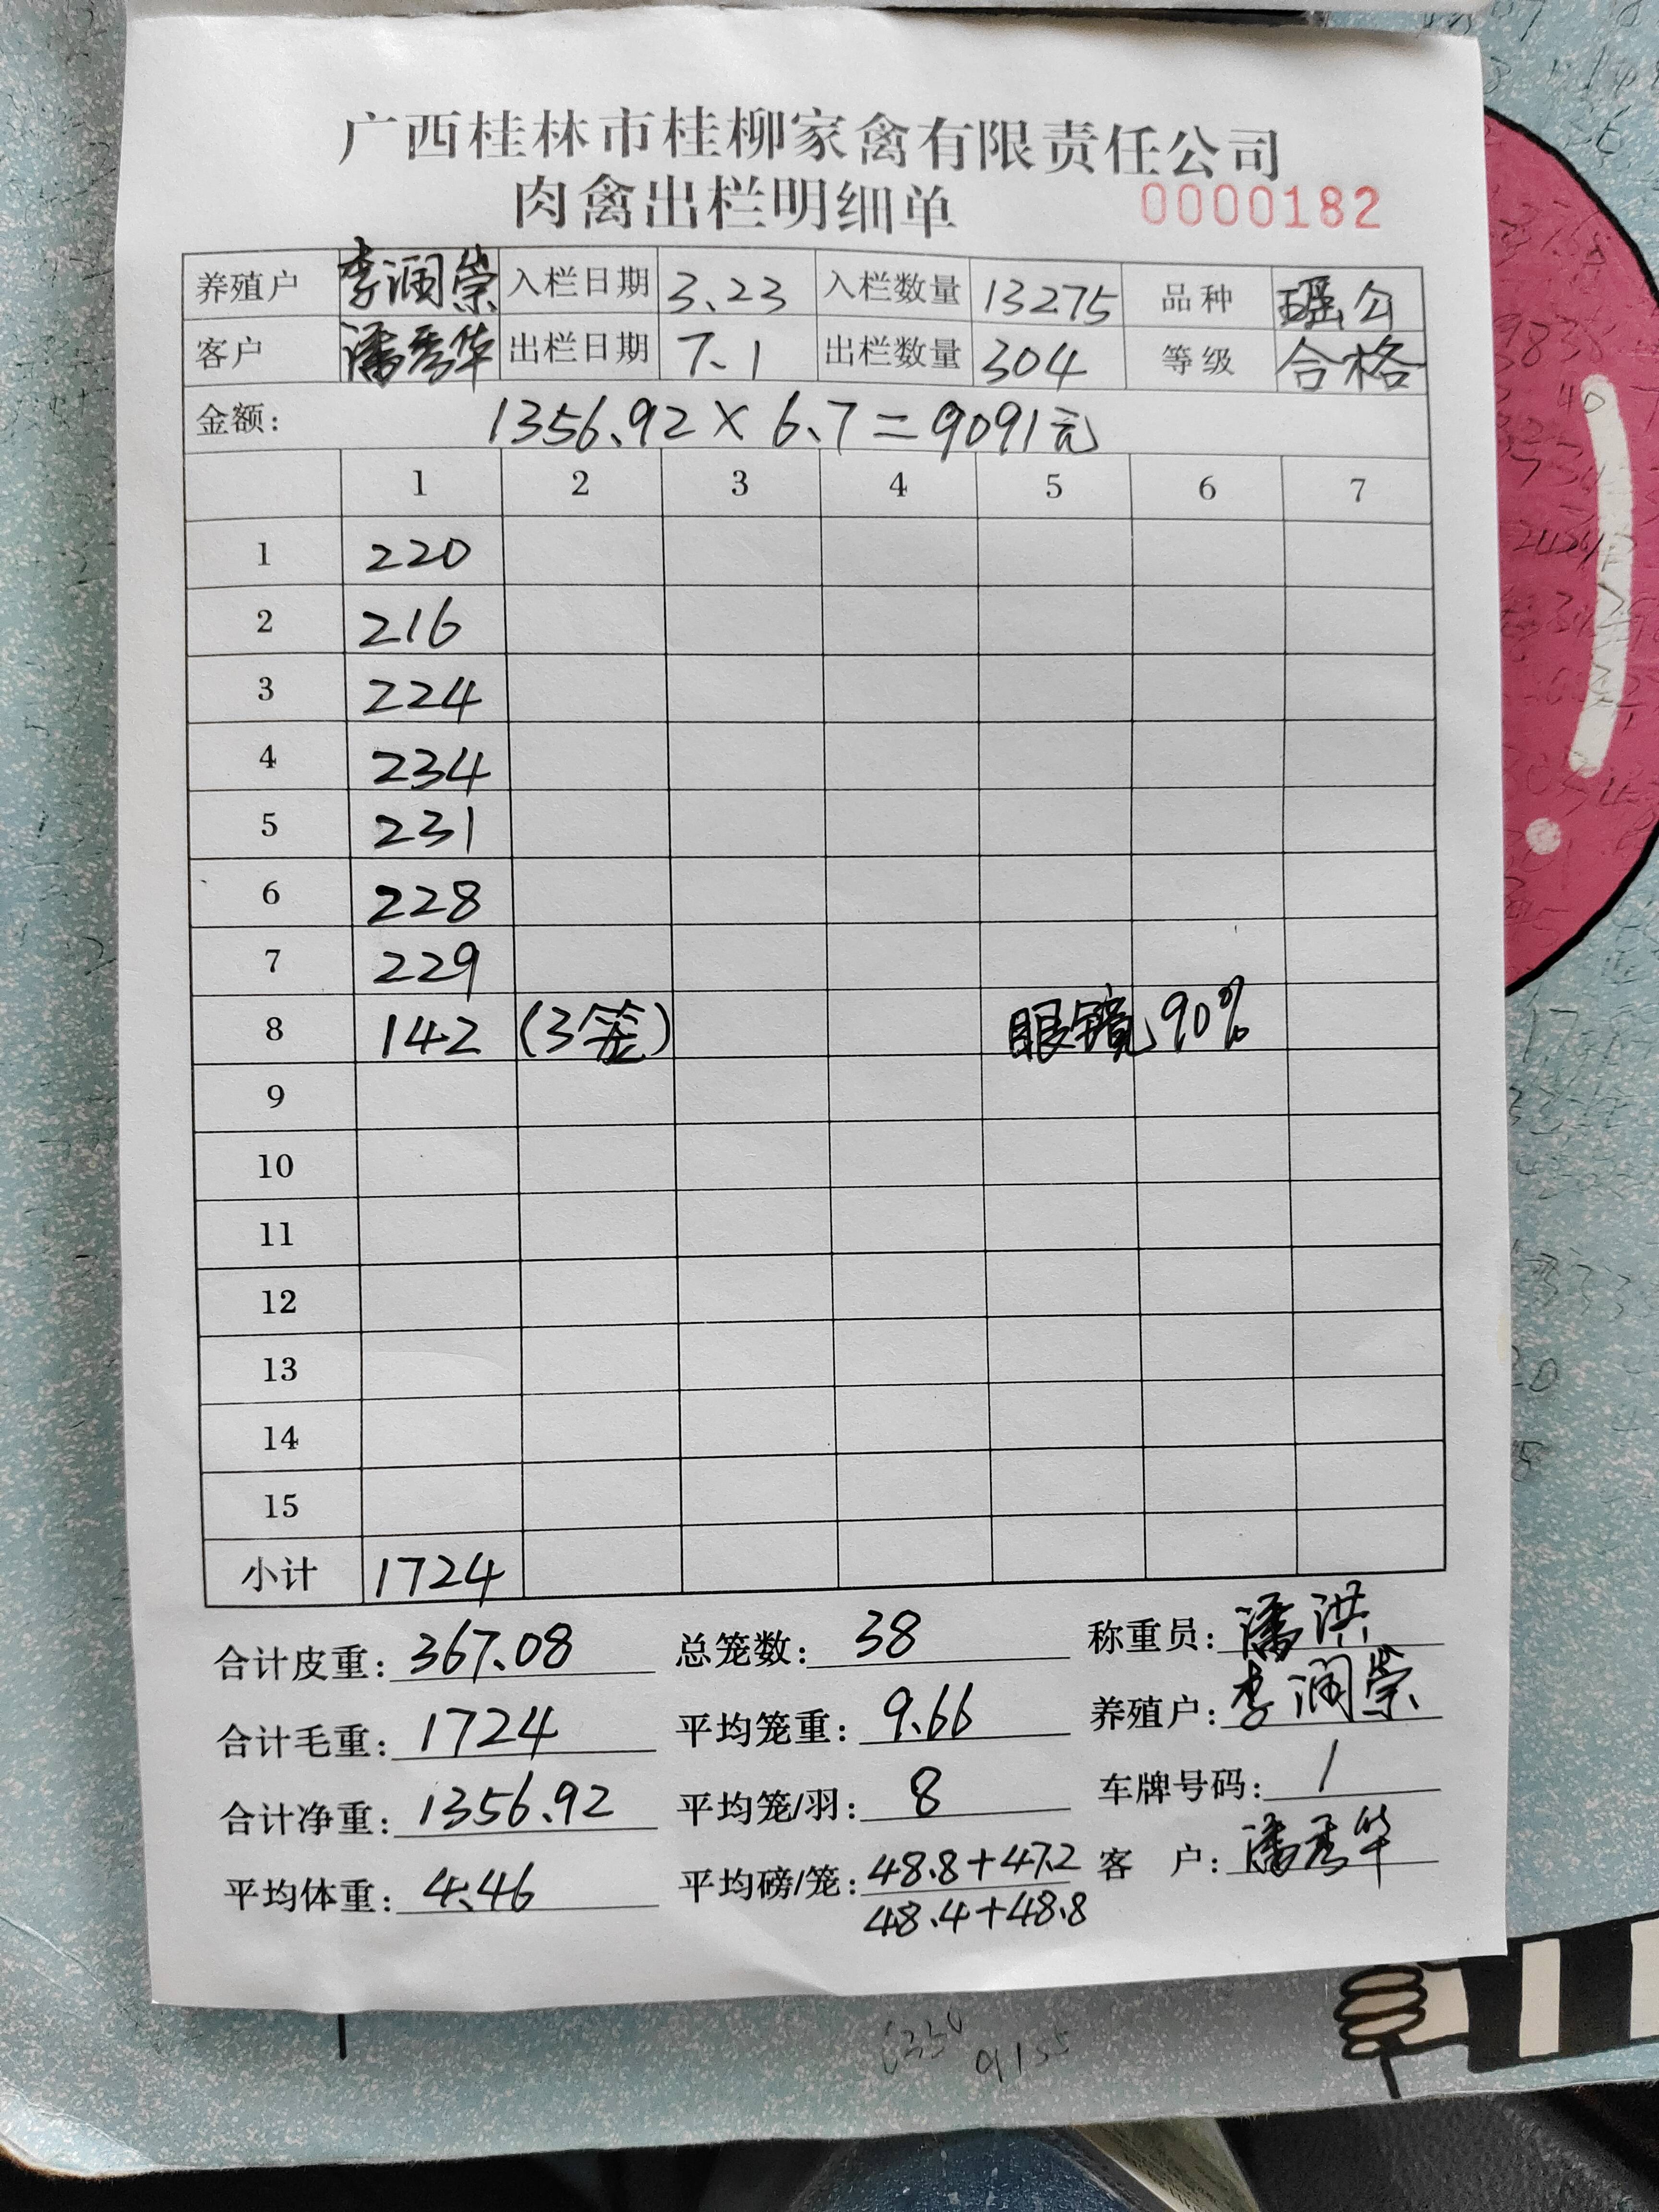 广西桂林市桂柳家禽有限责任公司
肉禽出栏明细单 0000182
养殖户 李润崇 入栏日期 3.23 入栏数量 13275 品种 瑶公
客户 潘秀华 出栏日期 7.1 出栏数量 304 等级 合格
金额: 1356.92×6.7=9091元
1 2 3 4 5 6 7
1 220
2 216
3 224
4 234
5 231
6 228
7 229
8 142 (3笼) 眼镜90%
9
10
11
12
13
14
15
小计 1724
合计皮重: 367.08 总笼数: 38 称重员: 潘洪
合计毛重: 1724 平均笼重: 9.66 养殖户: 李润崇
合计净重: 1356.92 平均笼/羽: 8 车牌号码: 1
平均体重: 4.46 平均磅/笼: 48.8+47.2 客 户: 潘秀华
48.4+48.8